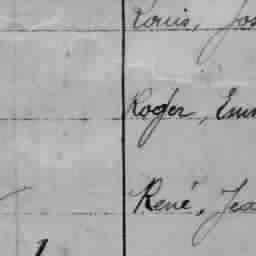 Louis, Jos
Roger, Emm
René, Jea